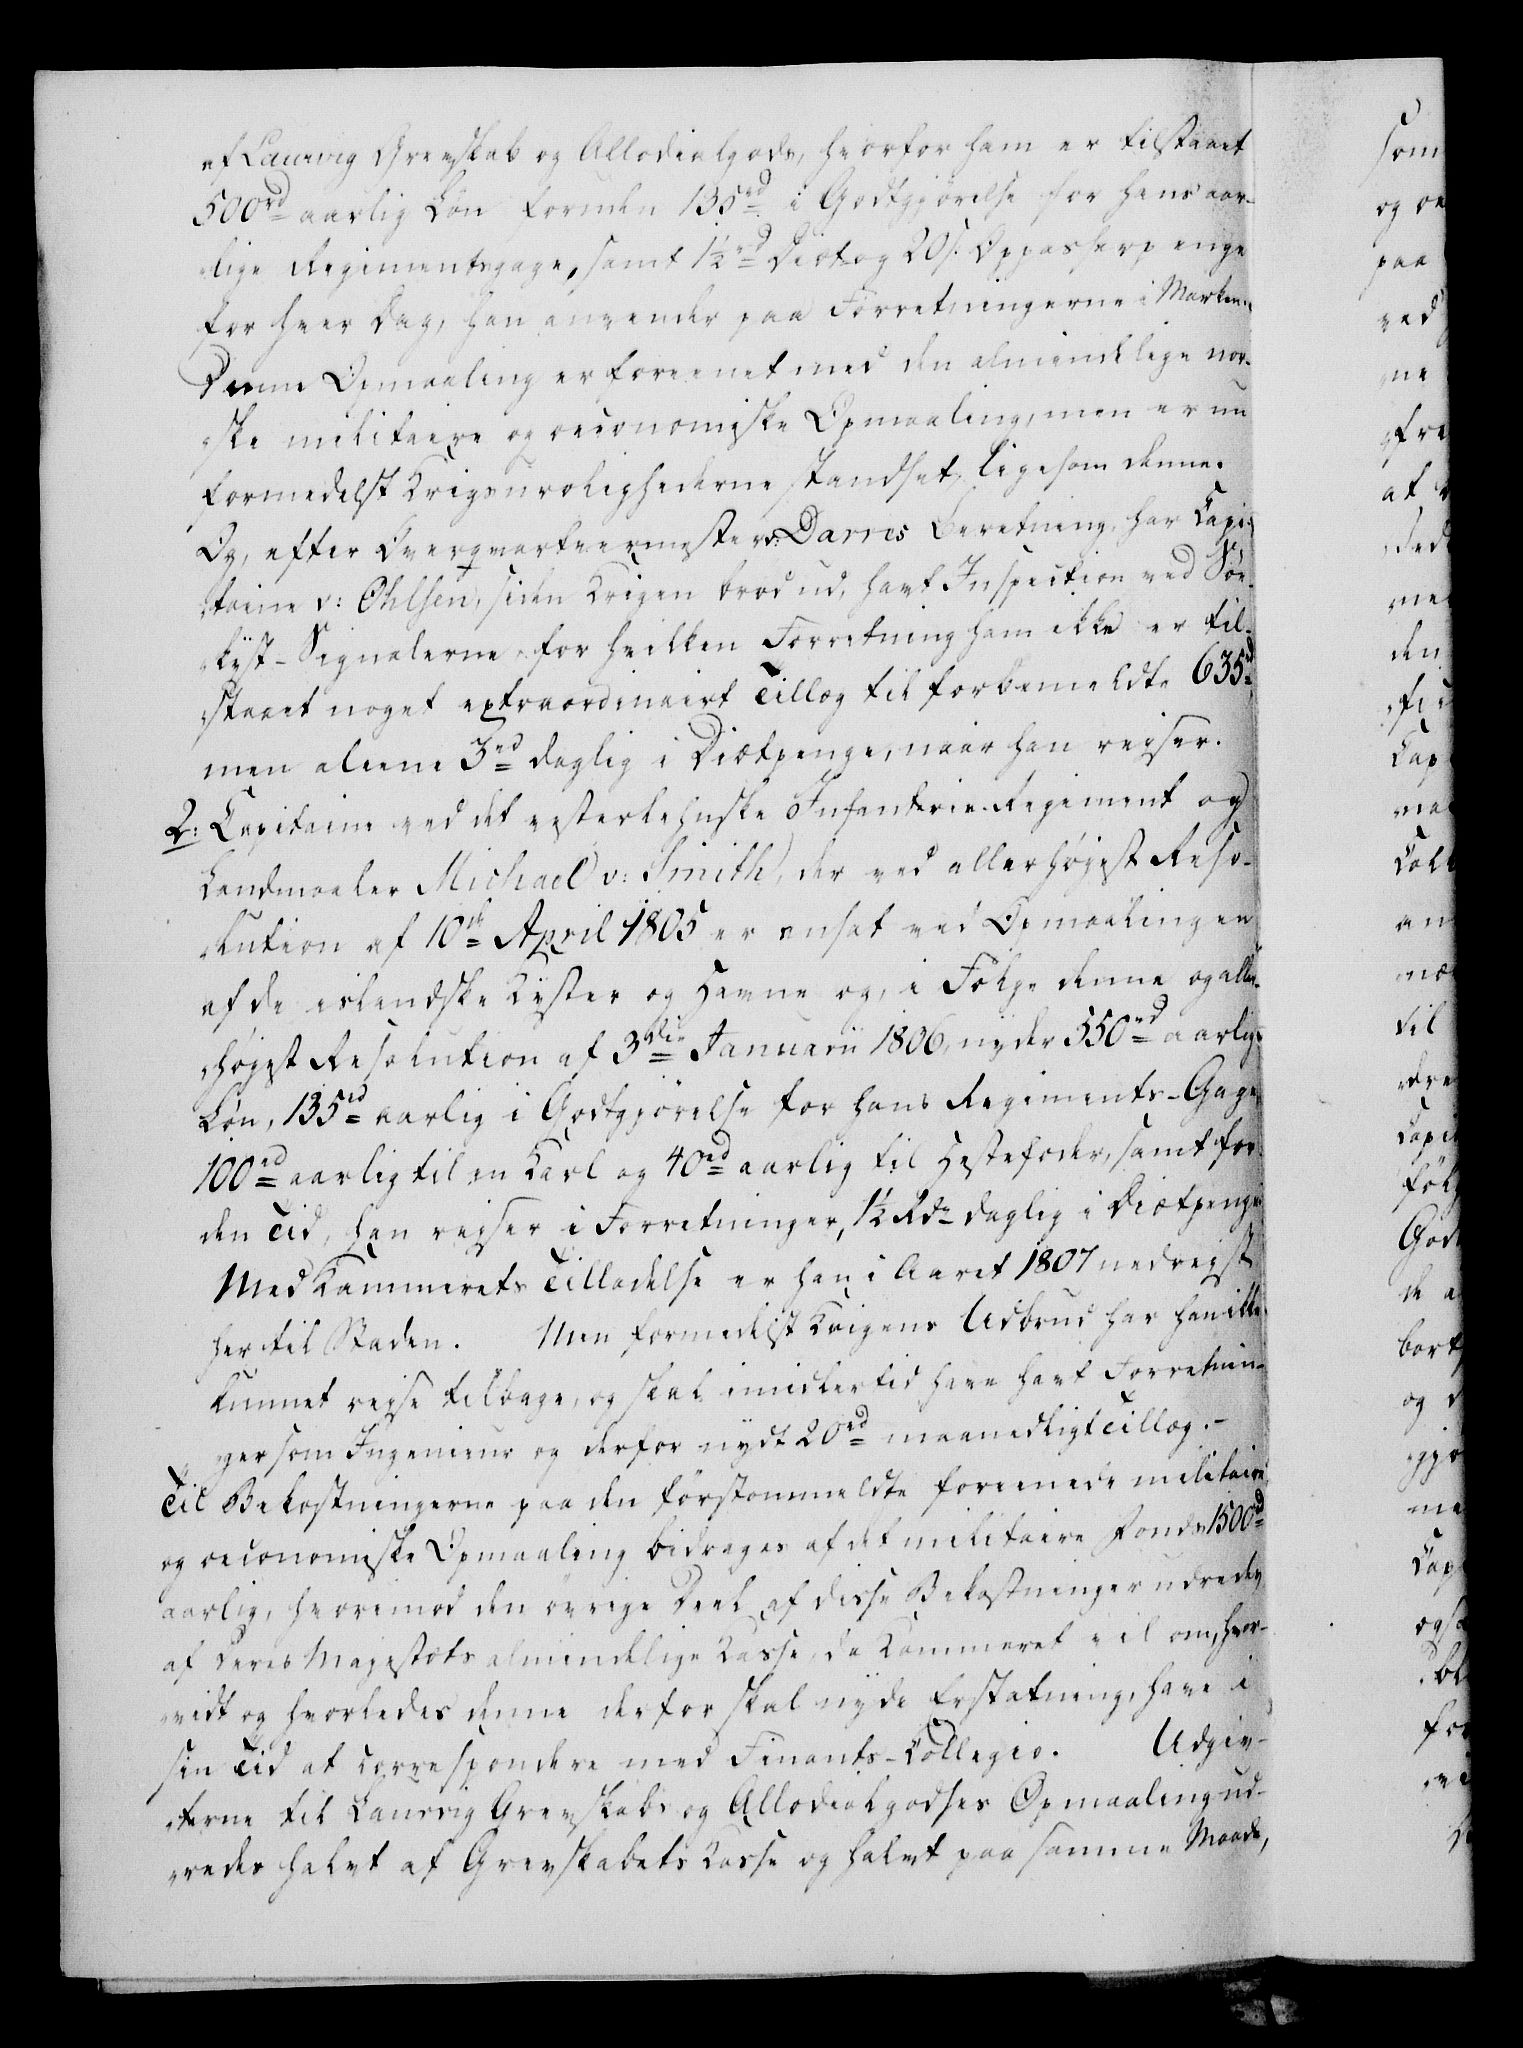 af Laurvig Grevskab og Allodialgods, hvorfor ham er tilstaaet
500rd aarlig Løn foruden 135rd i Godtgjörelse for hans aar-
lige Regimentsgage, samt 1½rd Diæt og 20s. Oppasserpenge
for hver Dag, han anvender paa Forretningerne i Marken.
Denne Opmaaling er foreenet med den almindelige nor-
ske militaire og oeconomiske Opmaaling, men er nu
formedelst Krigsurolighederne standset, ligesom denne.
Og, efter Overqvarteermester v: Darres Beretning, har Capi-
taine v: Ohlsen, siden Krigen brød ud, havt Inspection ved Söe-
kyst-Signalerne for hvilken Forretning ham ikke er til-
staaet noget extraordinairt Tillæg til forbemeldte 635rd
men alene 3rd daglig i Diætpenge, naar han reiser.
2: Capitaine ved det vesterlehnske Infanterie-Regiment og
Landmaaler Michael v: Smith, der ved allerhøjest Reso-
lution af 10de April 1805 er ansat ved Opmaalingen
af de islandske Kyster og Havne og, i Følge denne og aller-
høyest Resolution af 3die Januarii 1806, nyder 550rd aarlig
Løn, 135rd aarlig i Godtgjörelse for hans Regiments-Gage
100rd aarlig til en Karl og 40rd aarlig til Hestefoder, samt for
den Tid, han reiser i Forretninger, 1½ Rdr daglig i Diætpenge
Med Kammerets Tilladelse er han i Aaret 1807 nedreist
her til Staden. Men formedelst Krigens Udbrud har han ikke
kunnet reise tilbage, og skal imidlertid have havt Forretnin-
ger som Ingenieur og derfor nydt 20rd maanedligt Tillæg.-
Til Bekostningerne paa den førstommeldte foreenede militaire
og oeconomiske Opmaaling bidrages af det militaire Fonds 1500rd
aarlig, hvorimod den övrige Deel af disse Bekostninger udredes
af Deres Majestæts almindelige Kasse, da Kammeret vil om, hvor-
vidt og hvorledes denne derfor skal nyde Erstatning, have i
sin Tid at correspondere med Finants-Collegio. Udgiv-
terne til Laurvig Grevskabs og Allodialgodses Opmaaling ud-
redes halvt af Grevskabets Kasse og halvt paa samme Maade,